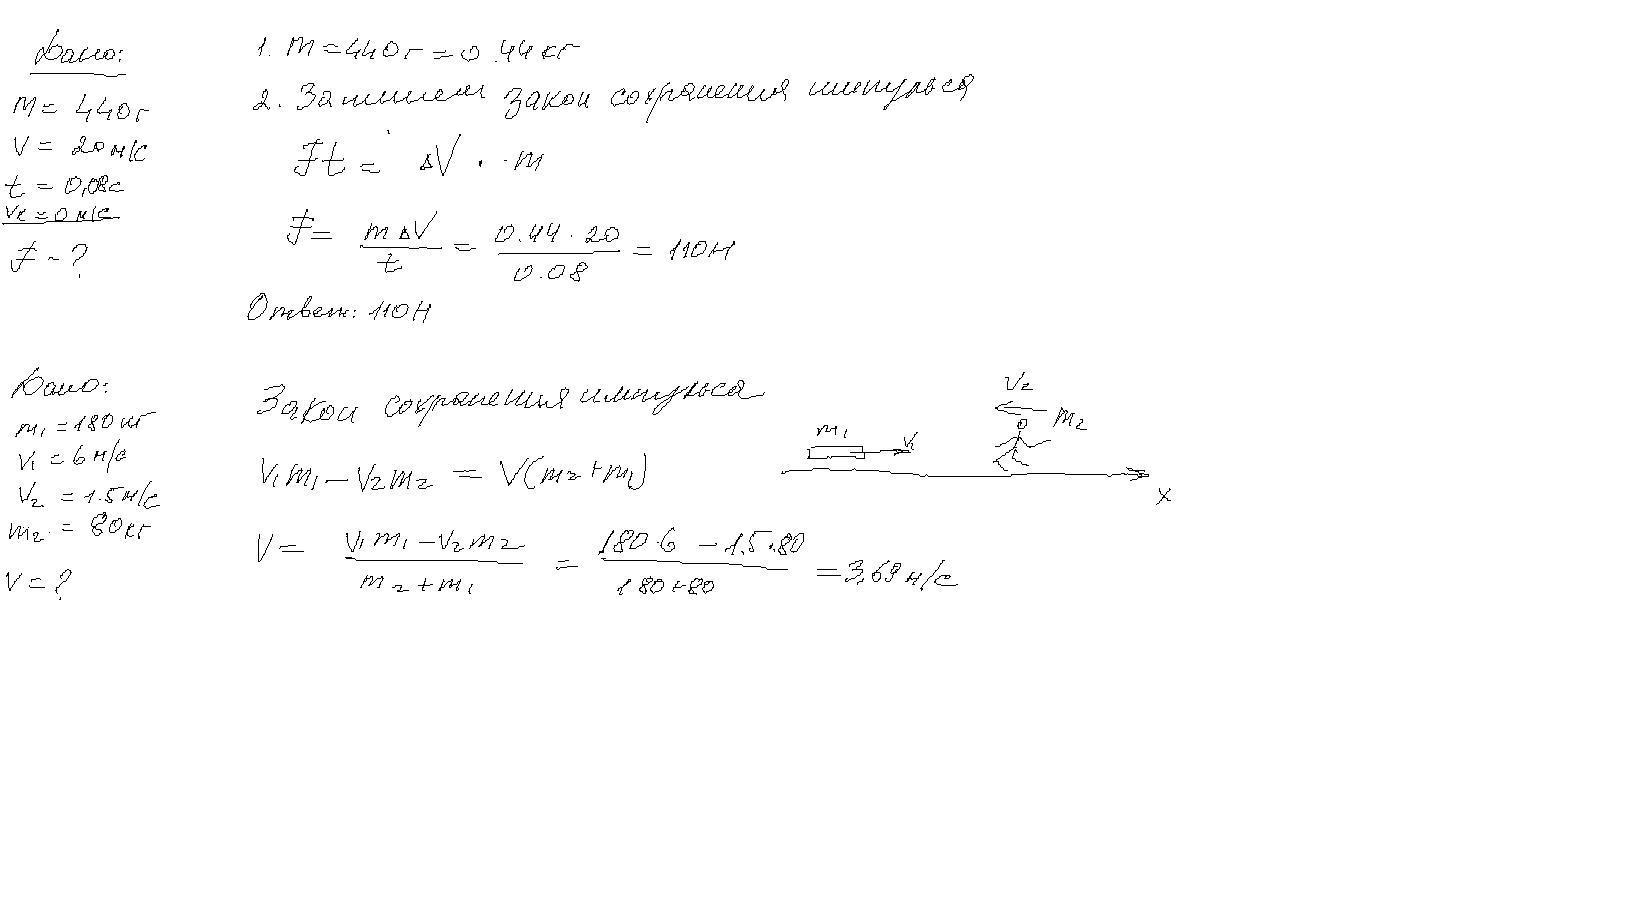 Дано:
m = 440 г
V = 20 м/с
t = 0,08 с
Vк = 0 м/с
F - ?
1. m = 440 г = 0.44 кг
2. Запишем закон сохранения импульса
Ft = ΔV · m
F = mΔV / t = 0.44 · 20 / 0.08 = 110 Н
Ответ: 110 Н
Дано:
m1 = 180 кг
V1 = 6 м/с
V2 = 1.5 м/с
m2 = 80 кг
V = ?
Закон сохранения импульса
V1m1 - V2m2 = V(m2 + m1)
V = V1m1 - V2m2 / m2 + m1 = 180·6 - 1.5·80 / 180+80 = 3,69 м/с
V2
m2
m1
V1
X